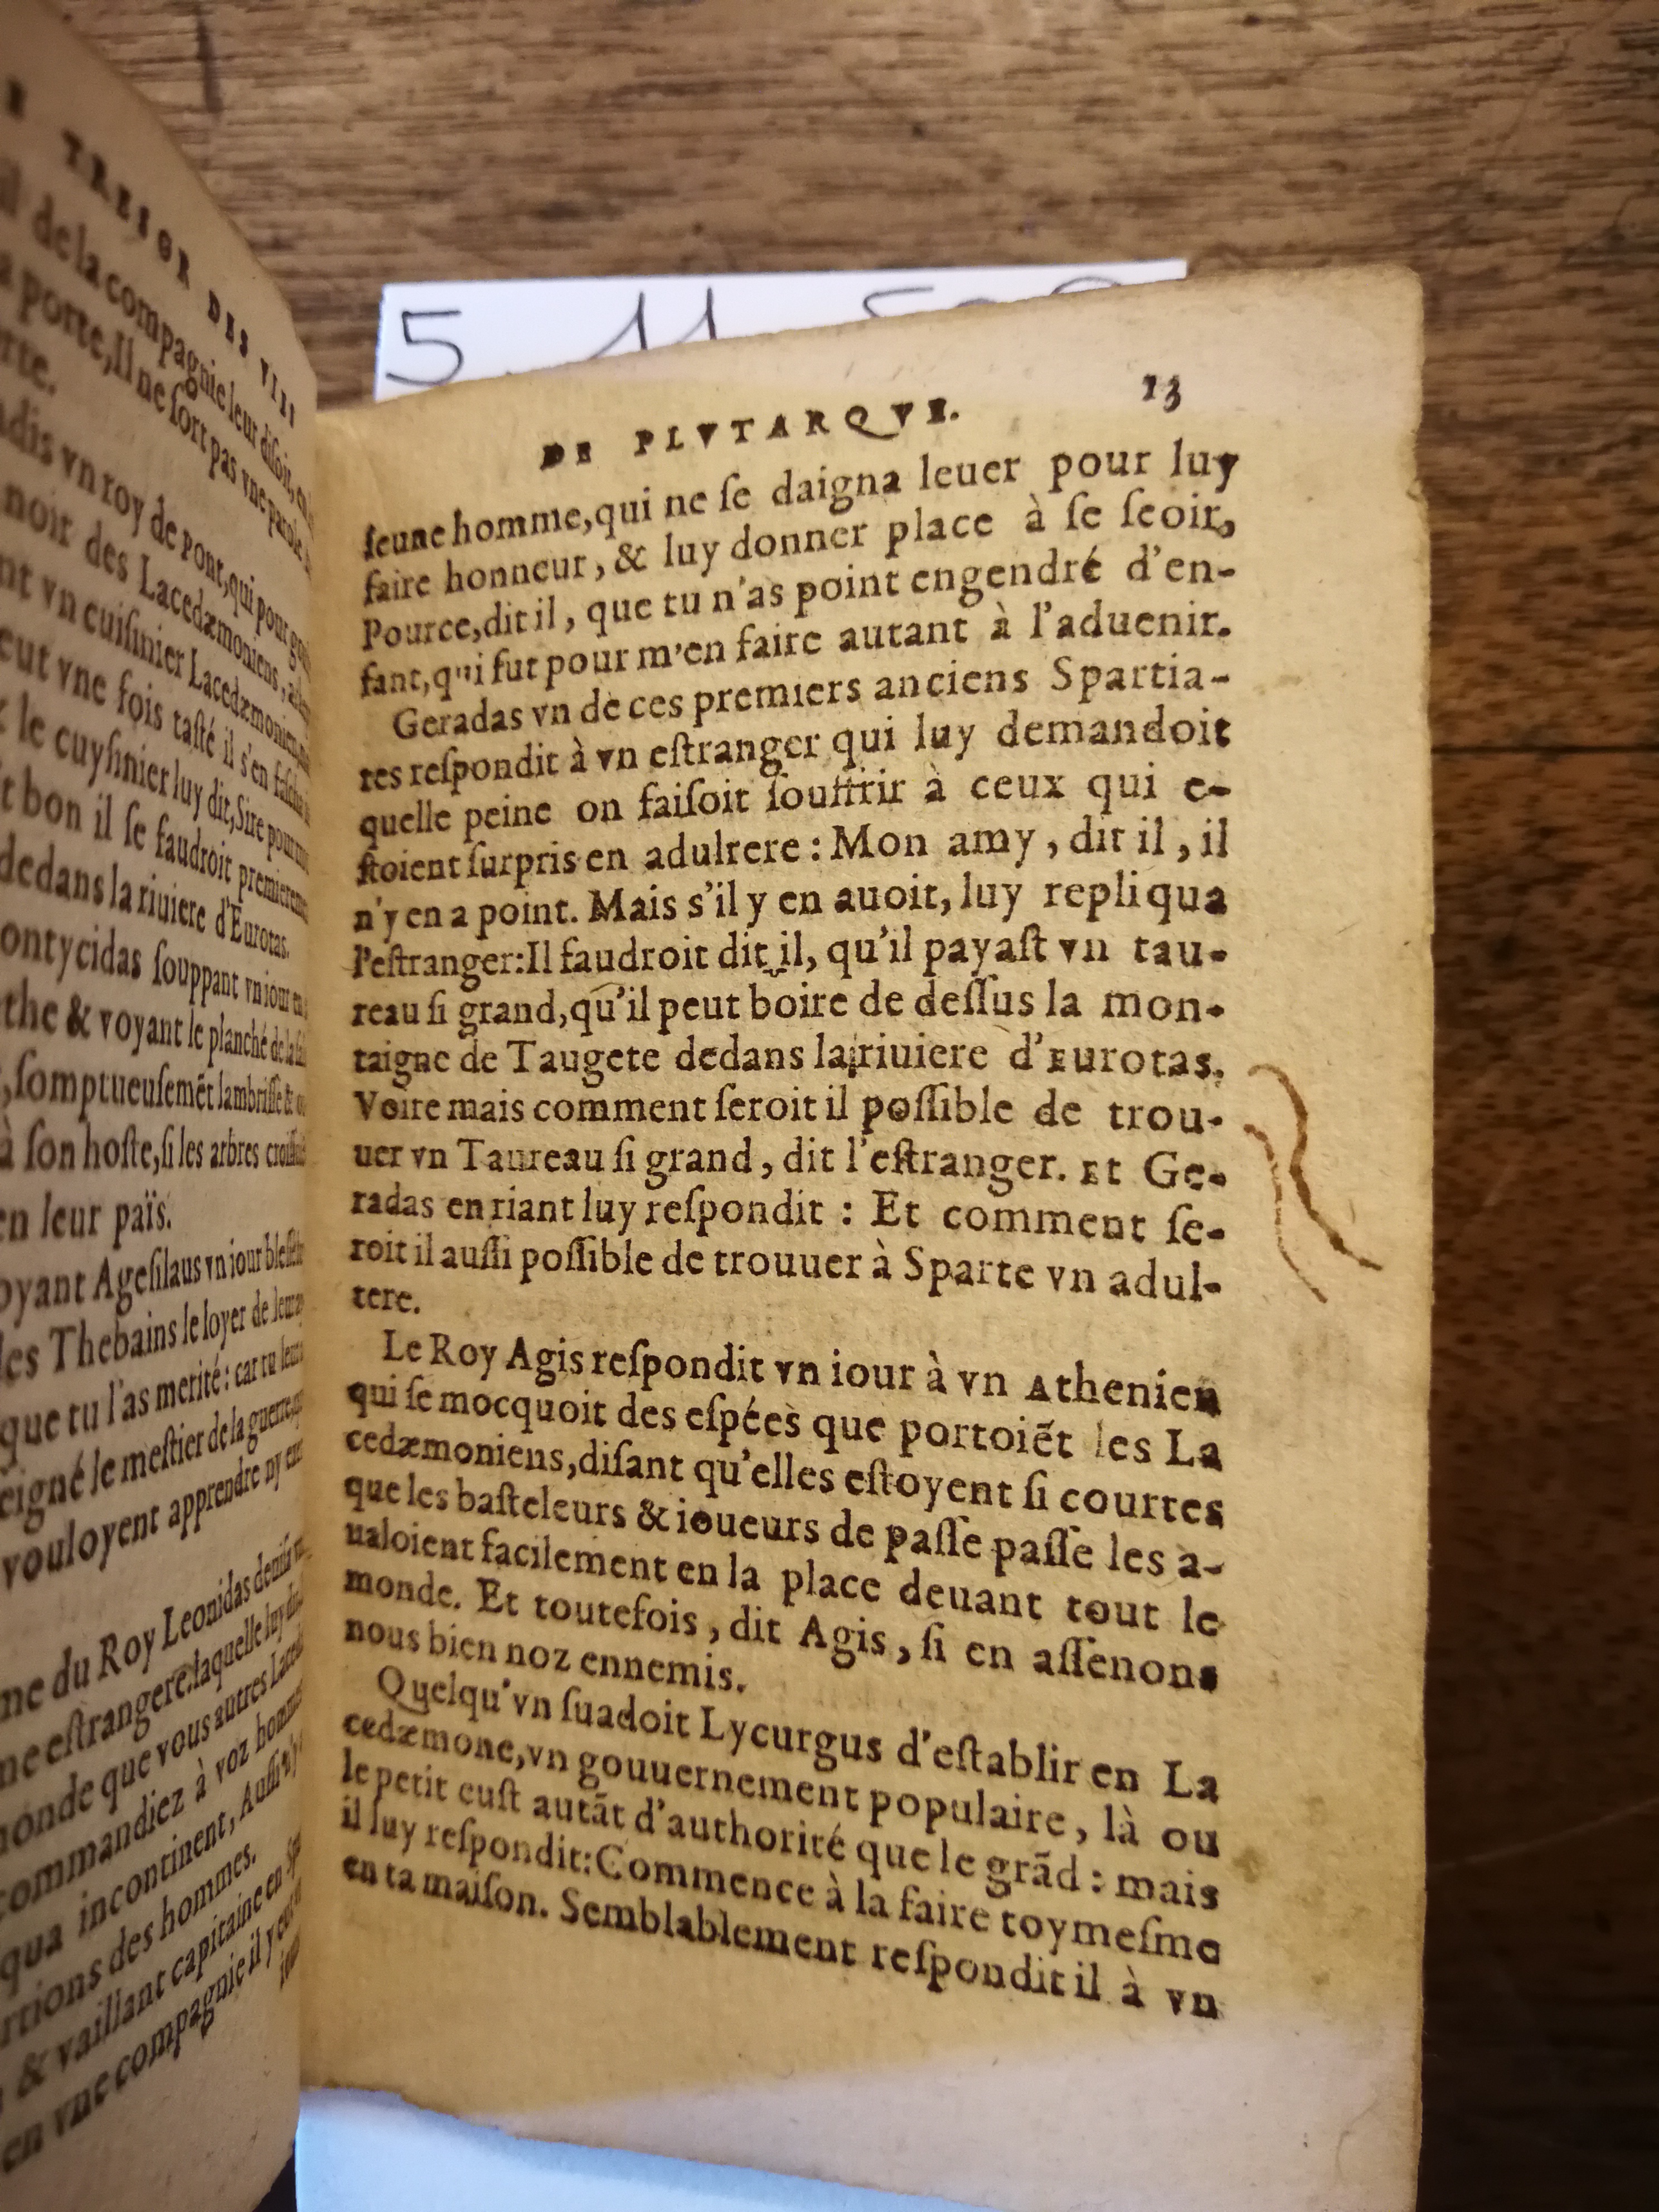 TRESOR DES VII
de la compagnie leur disoit, en
porte, Il ne sort pas vne parole
vn roy de pont, qui pour
noir des Lacedæmoniens,
vn cuisinier Lacedæmonien,
vne fois tasté il s'en
le cuysinier luy dit, Sire pour
bon il se faudroit
dedans la riuiere d'Eurotas.
souppant vn iour en
& voyant le planché de la
somptueusemẽt lambrissé &
à son hoste, si les arbres
en leur païs.
Agesilaus vn iour blessé
les Thebains le loyer de leur
que tu l'as merité: car tu
le mestier de la guerre,
vouloyent apprendre ny
du Roy Leonidas
estrangere: laquelle luy
que vous autres
commandiez à voz
incontinent, Aussi
des hommes.
& vaillant capitaine en
en vne compagnie il y
5 11
DE PLVTARQVE. 13
ieune homme, qui ne ſe daigna leuer pour luy
faire honneur, & luy donner place à ſe ſeoir,
Pource, dit il, que tu n'as point engendré d'en-
fant, qui fut pour m'en faire autant à l'aduenir.
Geradas vn de ces premiers anciens Spartia-
tes reſpondit à vn eſtranger qui luy demandoit
quelle peine on faiſoit ſouffrir à ceux qui e-
ſtoient ſurpris en adultere: Mon amy, dit il, il
n'y en a point. Mais s'il y en auoit, luy repliqua
l'eſtranger: Il faudroit dit il, qu'il payaſt vn tau-
reau ſi grand, qu'il peut boire de deſſus la mon-
taigne de Taugete dedans la riuiere d'Eurotas.
Voire mais comment ſeroit il poſſible de trou-
uer vn Taureau ſi grand, dit l'eſtranger. Et Ge-
radas en riant luy reſpondit : Et comment ſe-
roit il auſſi poſſible de trouuer à Sparte vn adul-
tere.
Le Roy Agis reſpondit vn iour à vn Athenien
qui ſe mocquoit des eſpées que portoiẽt les La
cedæmoniens, diſant qu'elles eſtoyent ſi courtes
que les baſteleurs & ioueurs de paſſe paſſe les a-
ualoient facilement en la place deuant tout le
monde. Et toutefois, dit Agis, ſi en aſſenons
nous bien noz ennemis.
Quelqu'vn ſuadoit Lycurgus d'eſtablir en La
cedæmone, vn gouuernement populaire, là ou
le petit euſt autãt d'authorité que le grãd : mais
il luy reſpondit: Commence à la faire toymeſme
en ta maiſon. Semblablement reſpondit il à vn